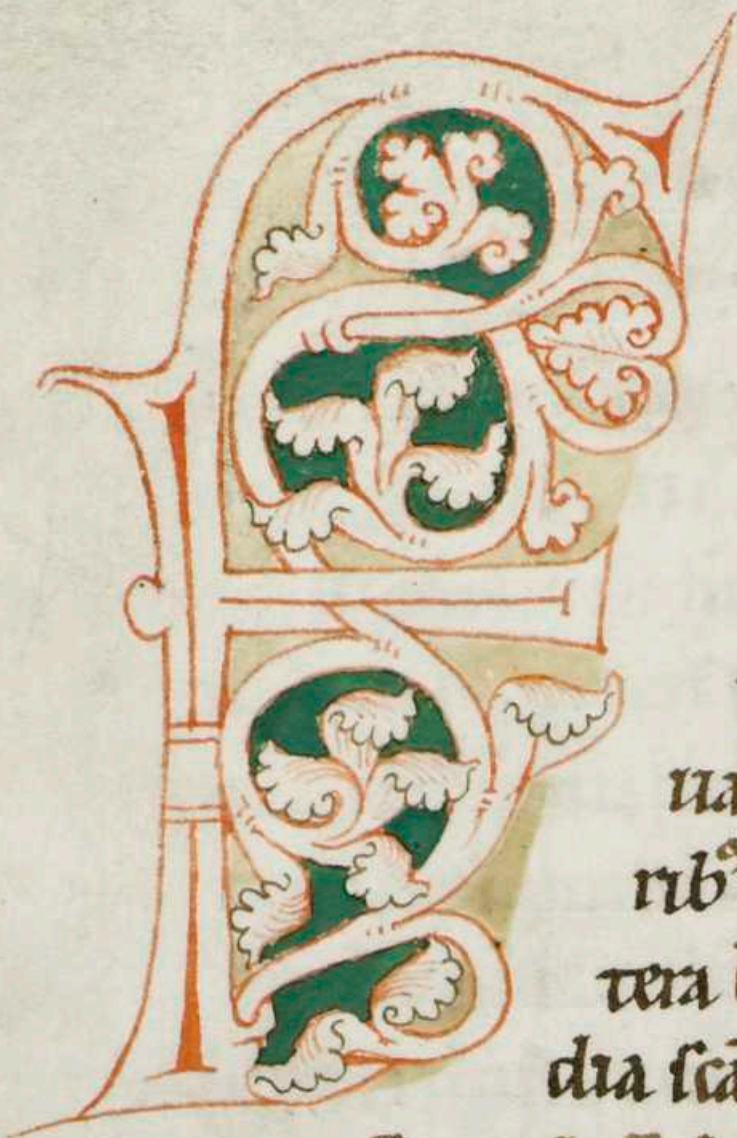 F
ua
ribꝰ
tera
dia ſcā